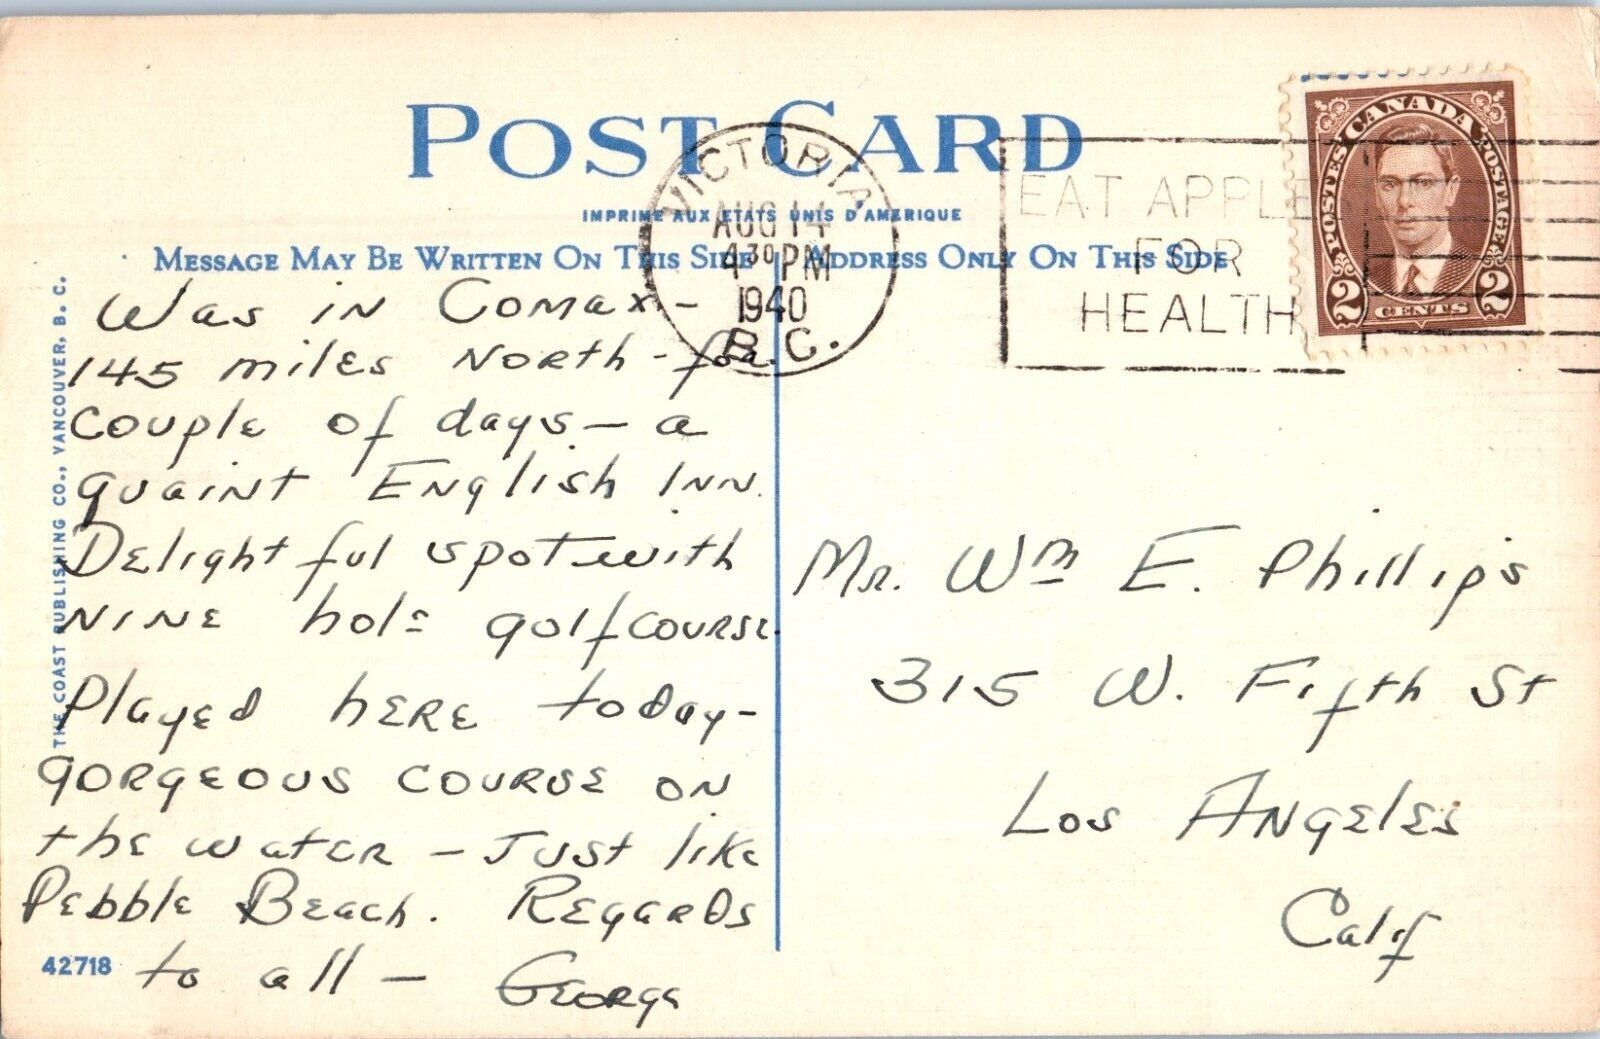 POST CARD
IMPRIME AUX ETATS UNIS D'AMERIQUE
MESSAGE MAY BE WRITTEN ON THIS SIDE
ADDRESS ONLY ON THIS SIDE
VICTORIA
AUG 14
4 30 PM
1940
B.C.
EAT APPLES
FOR
HEALTH
CANADA
POSTES POSTAGE
2 CENTS 2
Was in Comax -
145 miles North - for
couple of days - a
quaint English Inn.
Delightful spot with
nine hole golf course.
Played here today -
gorgeous course on
the water - Just like
Pebble Beach. Regards
to all - George
Mr. Wm E. Phillips
315 W. Fifth St
Los Angeles
Calif
THE COAST PUBLISHING CO., VANCOUVER, B. C.
42718